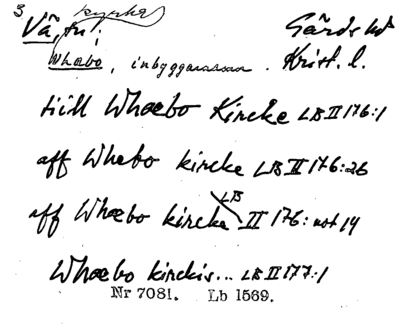 3 kyrka
Vä, tn;
Whæbo, inbyggarna.
Krist. l.
tiill Whæbo Kircke LB II 176:1
aff Whebo kircke LB II 176:26
aff Whæbo kircke LB II 176: not 14
Whæbo kirckis... LB II 177:1
Nr 7081. Lb 1569.